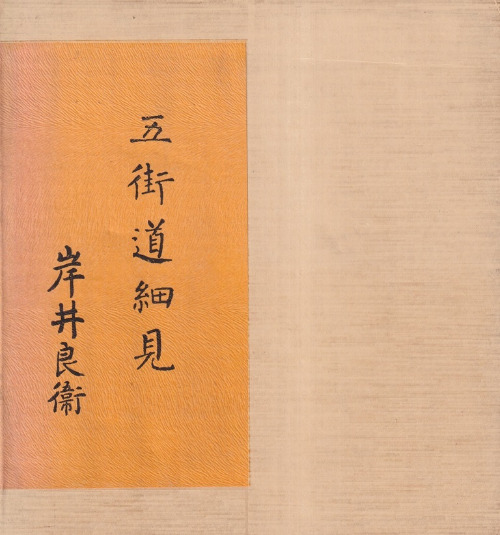 五街道細見
岸井良衞